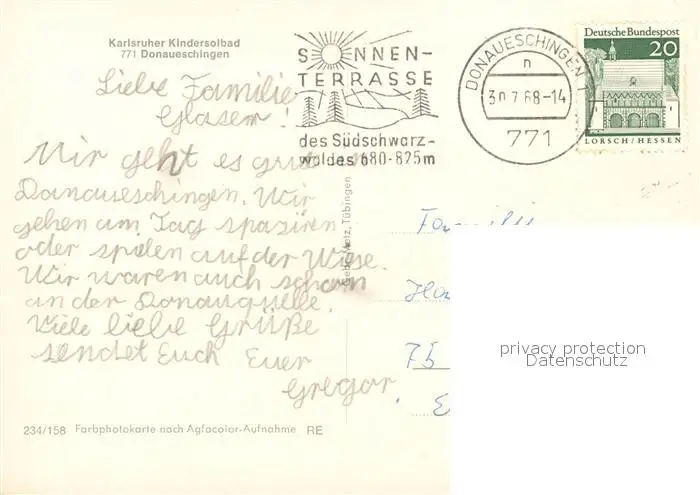 Karlsruher Kindersolbad
771 Donaueschingen
Liebe Familie
Glaser!
Mir geht es gut in
Donaueschingen. Wir
gehen am Tag spaziren
oder spilen auf der Wiese.
Wir waren auch schon
an der Donauquelle.
Viele liebe Grüße
sendet Euch Euer
Gregor
234/158 Farbphotokarte nach Agfacolor-Aufnahme RE
Gebr. Metz, Tübingen
SONNEN-
TERRASSE
des Südschwarz-
waldes 680-825m
DONAUESCHINGEN 1
n
30.7.68-14
771
Deutsche Bundespost
20
LORSCH/HESSEN
75
privacy protection
Datenschutz